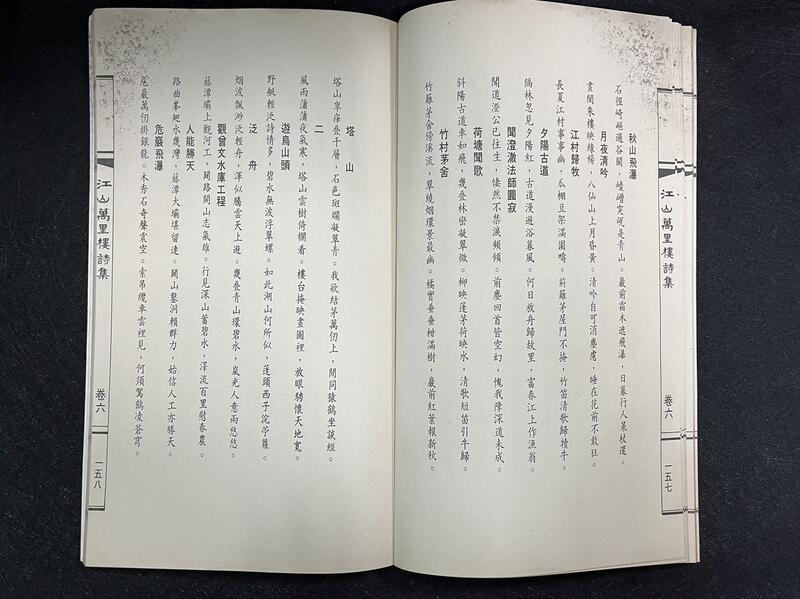 江山萬里樓詩集
卷六
一五七
秋山飛瀑
石徑崎嶇過谷關，崚嶒突兀是青山。巖前霜木遮飛瀑，日暮行人策杖還。
月夜清吟
畫閣朱樓映綠楊，八仙山上月昏黃。清吟自可消塵慮，睡在花前不敢狂。
江村歸牧
長夏江村事事幽，瓜棚豆架滿園疇。荊籬茅屋門不掩，竹笛清歌歸犢牛。
夕陽古道
隔林忽見夕陽紅，古道漫遊浴暮風。何日放舟歸故里，富春江上作漁翁。
聞澄澈法師圓寂
聞道澄公已往生，悽然不禁淚頻傾。前塵回首皆空幻，愧我障深道未成。
荷塘聞歌
斜陽古道車如飛，幾疊林巒凝翠微。柳映蓬茅荷映水，清歌短笛引牛歸。
竹村茅舍
竹籬茅舍傍溪流，翠繞烟環景最幽。橘實垂垂柑滿樹，巖前紅葉報新秋。
塔山
塔山崒嵂疊千層，石色斑斕凝翠青。我欲結茅萬仞上，閒同猿鶴坐談經。
二
風雨蒲蒲夜氣寒，塔山雲樹倚欄看。樓台掩映畫圖裡，放眼騁懷天地寬。
遊烏山頭
野艇輕泛詩情多，碧水無波浮翠螺。如此湖山何所似，蓬頭西子浣苧蘿。
泛舟
烟波飄渺泛輕舟，渾似騰雲天上遊。幾疊青山環碧水，嵐光人意兩悠悠。
觀曾文水庫工程
藤潭壩上觀河工，開路開山志氣雄。行見深山蓄碧水，澤流百里慰春農。
人能勝天
路曲峯迴水幾灣，藤潭大壩堪留連。開山鑿洞賴群力，始信人工亦勝天。
危巖飛瀑
危巖萬仞掛銀龍。木秀石奇聲震空。索吊纜車雲裡見，何須駕鶴凌蒼穹。
江山萬里樓詩集
卷六
一五八